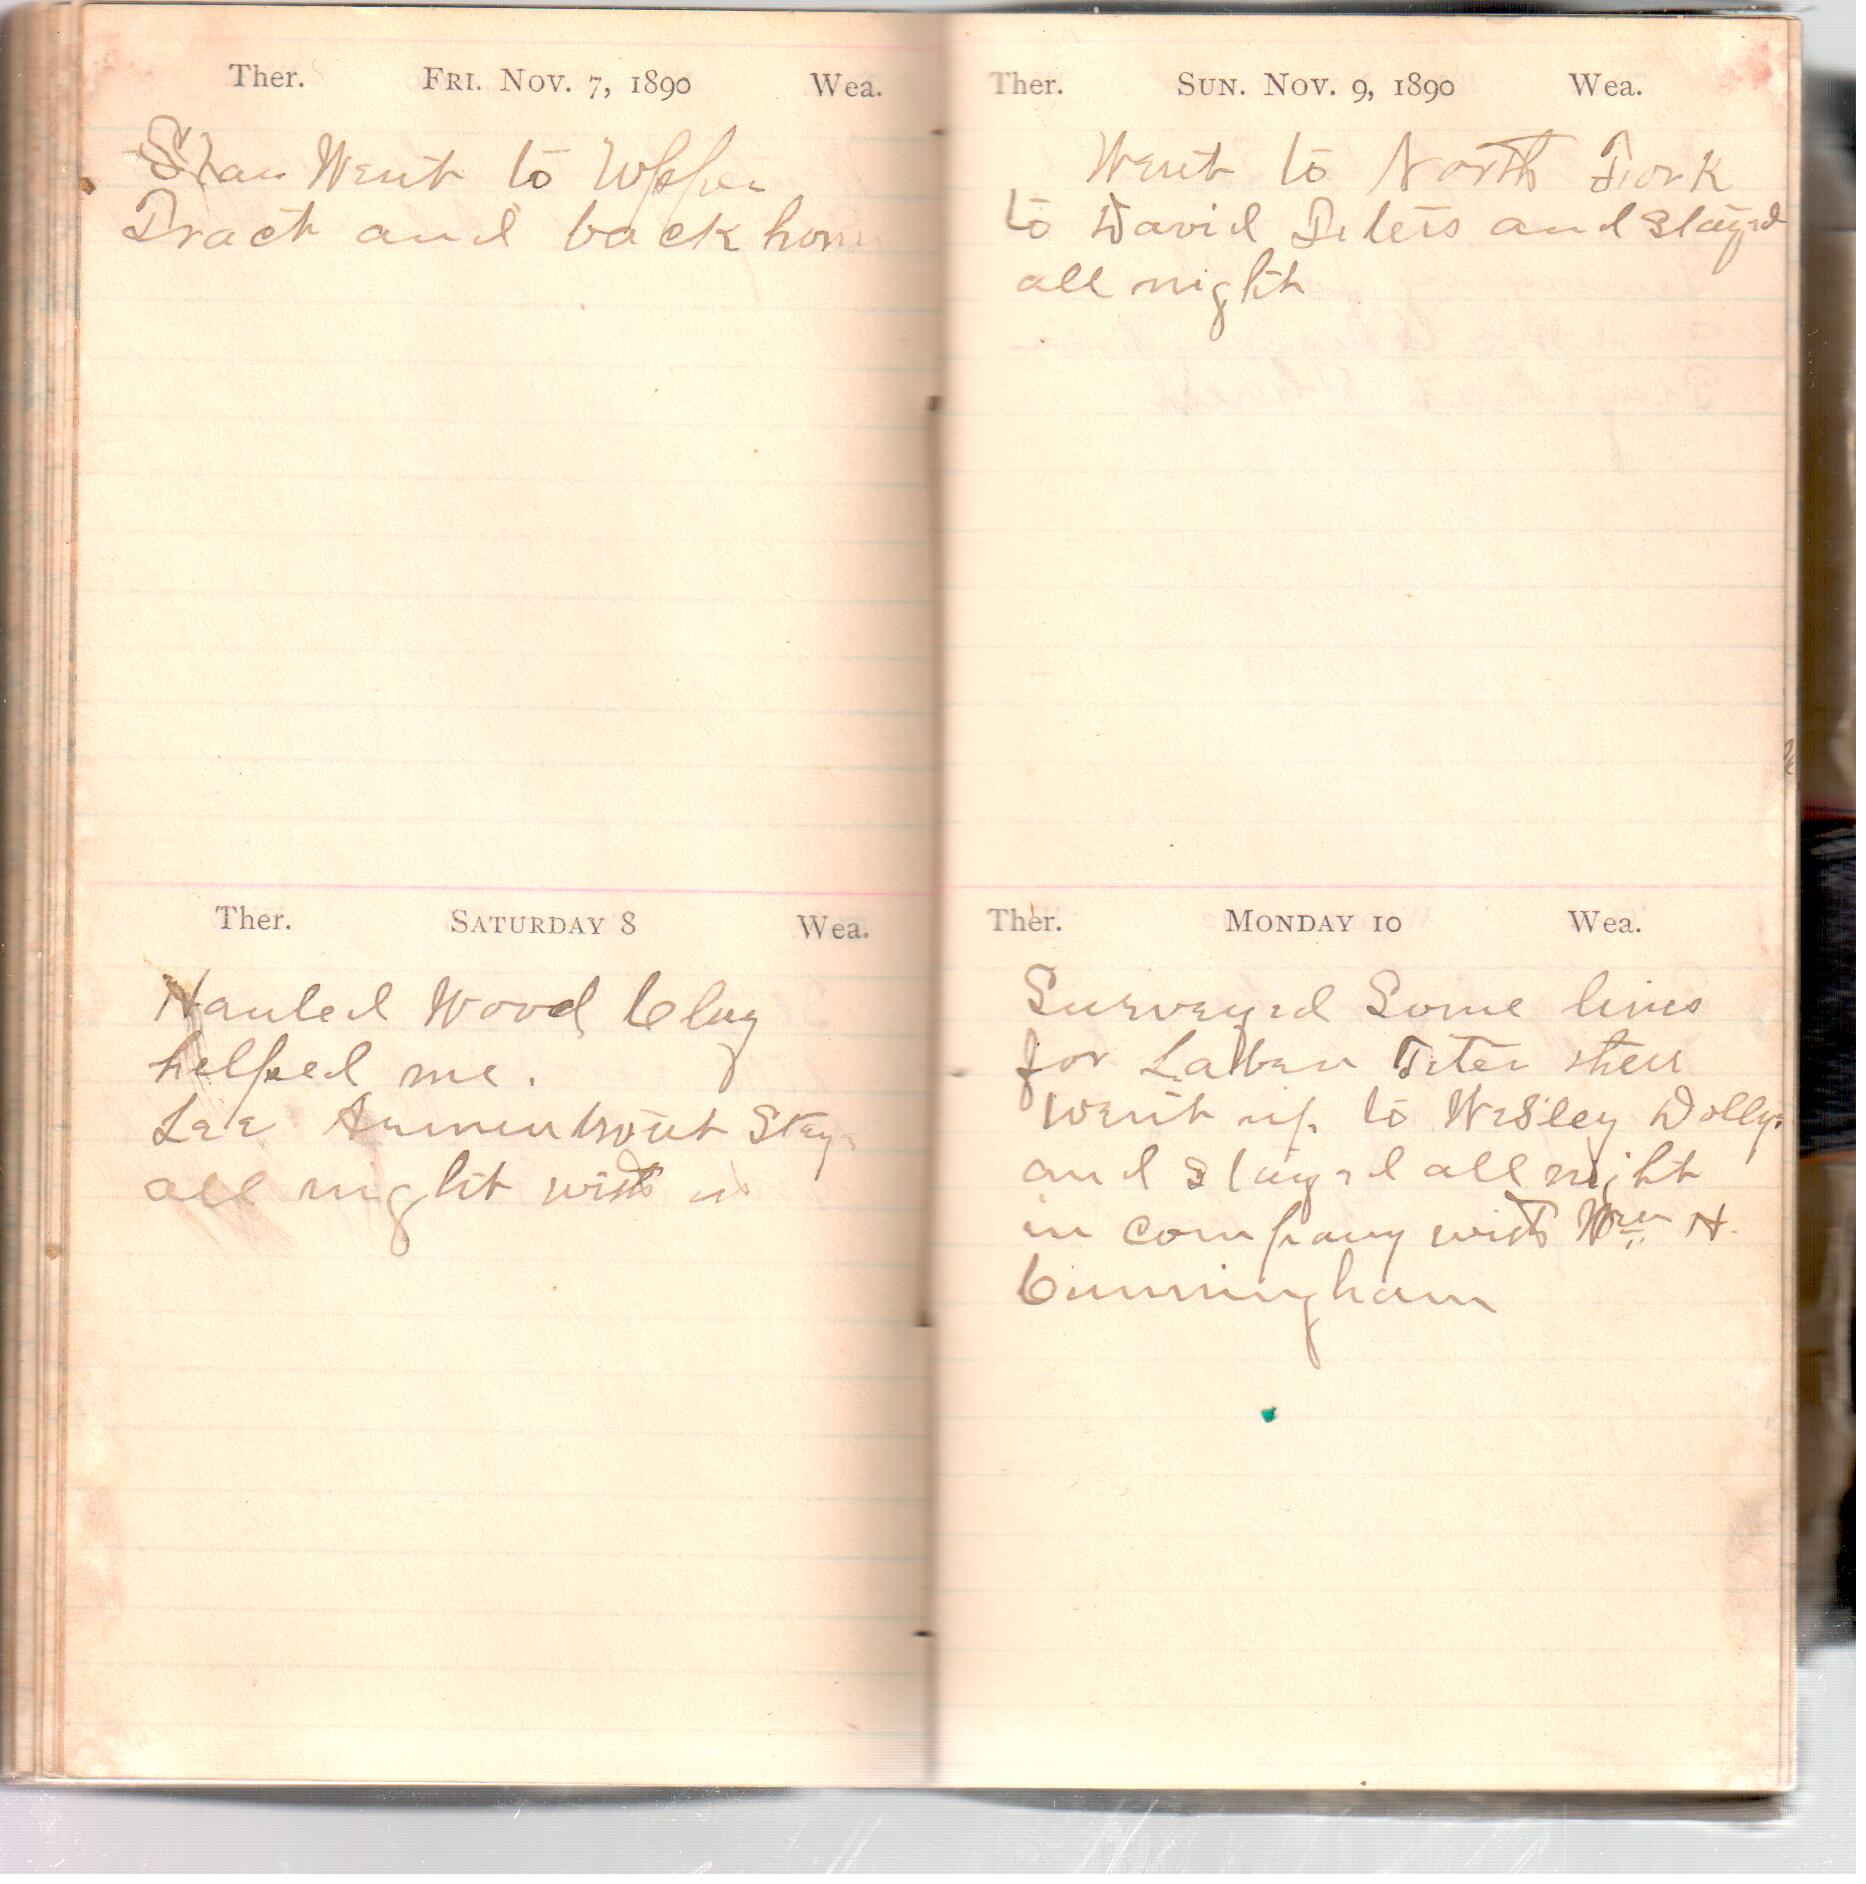 Ther. FRI. NOV. 7, 1890 Wea.
Went to Upper
Tract and back home
Ther. SATURDAY 8 Wea.
Hauled Wood Clay
helped me.
Lee Armentrout Stay
all night with us
Ther. SUN. NOV. 9, 1890 Wea.
Went to North Fork
to David Teters and stayed
all night
Ther. MONDAY 10 Wea.
Surveyed Some lines
for Laban Teter then
went up to Wesley Dollys
and stayed all night
in company with Wm H.
Cunningham